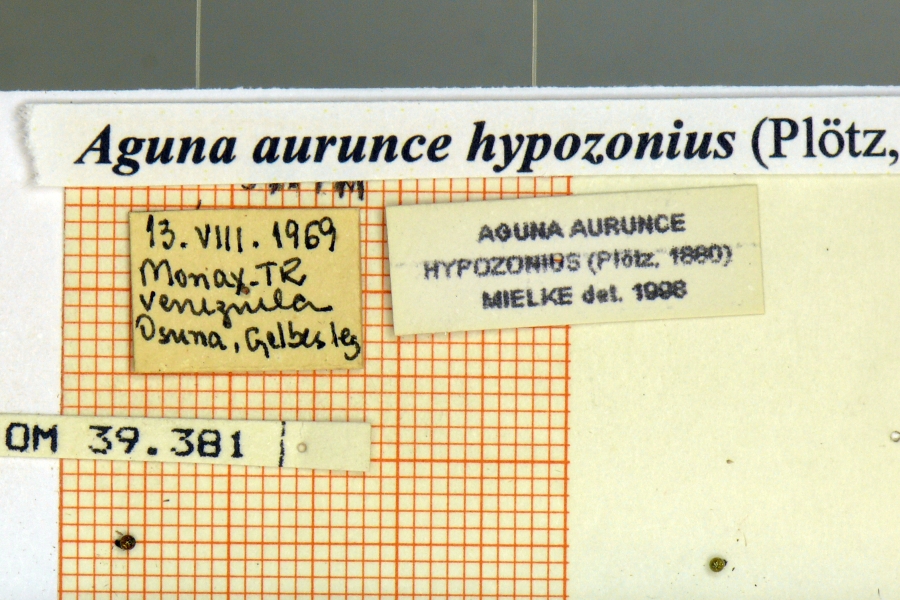 Aguna aurunce hypozonius (Plötz,
13.VIII.1969
Monay-TR
Venezuela
Osuna, Gelbes leg
AGUNA AURUNCE
HYPOZONIUS (Plötz, 1880)
MIELKE det. 1998
OM 39.381